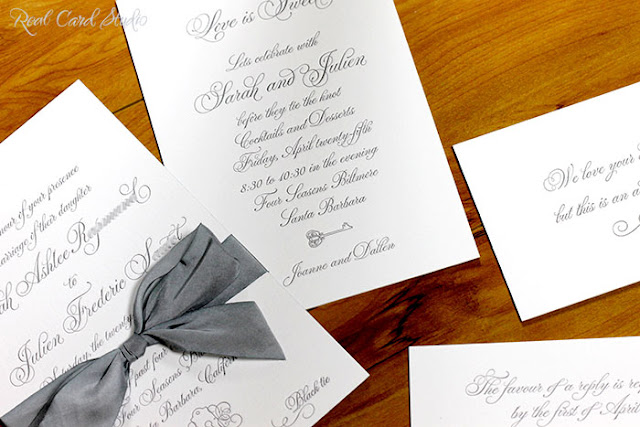 Real Card Studio
Love is Sweet
Lets celebrate with
Sarah and Julien
before they tie the knot
Cocktails and Desserts
Friday, April twenty-fifth
8:30 to 10:30 in the evening
Four Seasons Biltmore
Santa Barbara
Joanne and Dallen
of your presence
of their daughter
Ashlee
to
Julien Frederic
Saturday, the
past four
Four Seasons
Barbara, California
Black tie
We love your
but this is an
The favour of a reply is
by the first of April